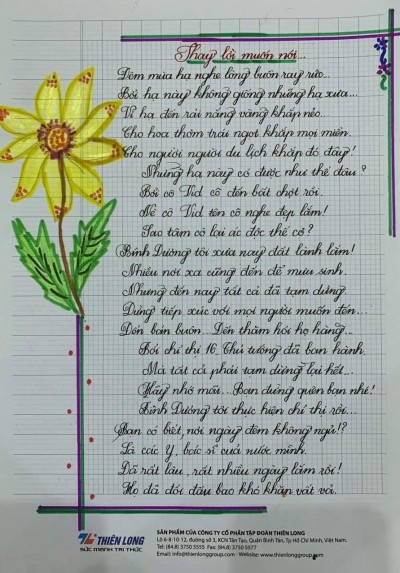 Thay lời muốn nói...
Đêm mùa hạ nghe lòng buồn ray rức...
Bởi hạ này không giống những hạ xưa...
Vì hạ đến rải nắng vàng khắp nẻo...
Cho hoa thơm trái ngọt khắp mọi miền.
Cho người người du lịch khắp đó đây!
Nhưng hạ này có được như thế đâu?
Bởi cô Vid cô đến bất chợt rồi.
Mà cô Vid tên cô nghe đẹp lắm!
Sao tâm cô lại ác độc thế cô?
Bình Dương tôi xưa nay đất lành lắm!
Nhiều nơi xa cũng đến để mưu sinh.
Nhưng đến nay tất cả đã tạm dừng.
Dừng tiếp xúc với mọi người muốn đến...
Đến bán buôn... Đến thăm hỏi họ hàng...
Bởi chỉ thị 16 Thủ tướng đã ban hành.
Mà tất cả phải tạm dừng lại hết...
Hãy nhớ mãi... Bạn đừng quên bạn nhé!
Bình Dương tôi thực hiện chỉ thị rồi...
Bạn có biết, nơi ngày đêm không ngủ!?
Là các Y, bác sĩ của nước mình.
Đã rất lâu, rất nhiều ngày lắm rồi!
Họ đã đối đầu bao khó khăn vất vả.
THIÊN LONG
SỨC MẠNH TRI THỨC
SẢN PHẨM CỦA CÔNG TY CỔ PHẦN TẬP ĐOÀN THIÊN LONG
Lô 6-8-10-12, đường số 3, KCN Tân Tạo, Quận Bình Tân, Tp Hồ Chí Minh, Việt Nam.
Tel: (84.8) 3750 5555 Fax: (84.8) 3750 5577
Email: info@thienlonggroup.com Website: www.thienlonggroup.com